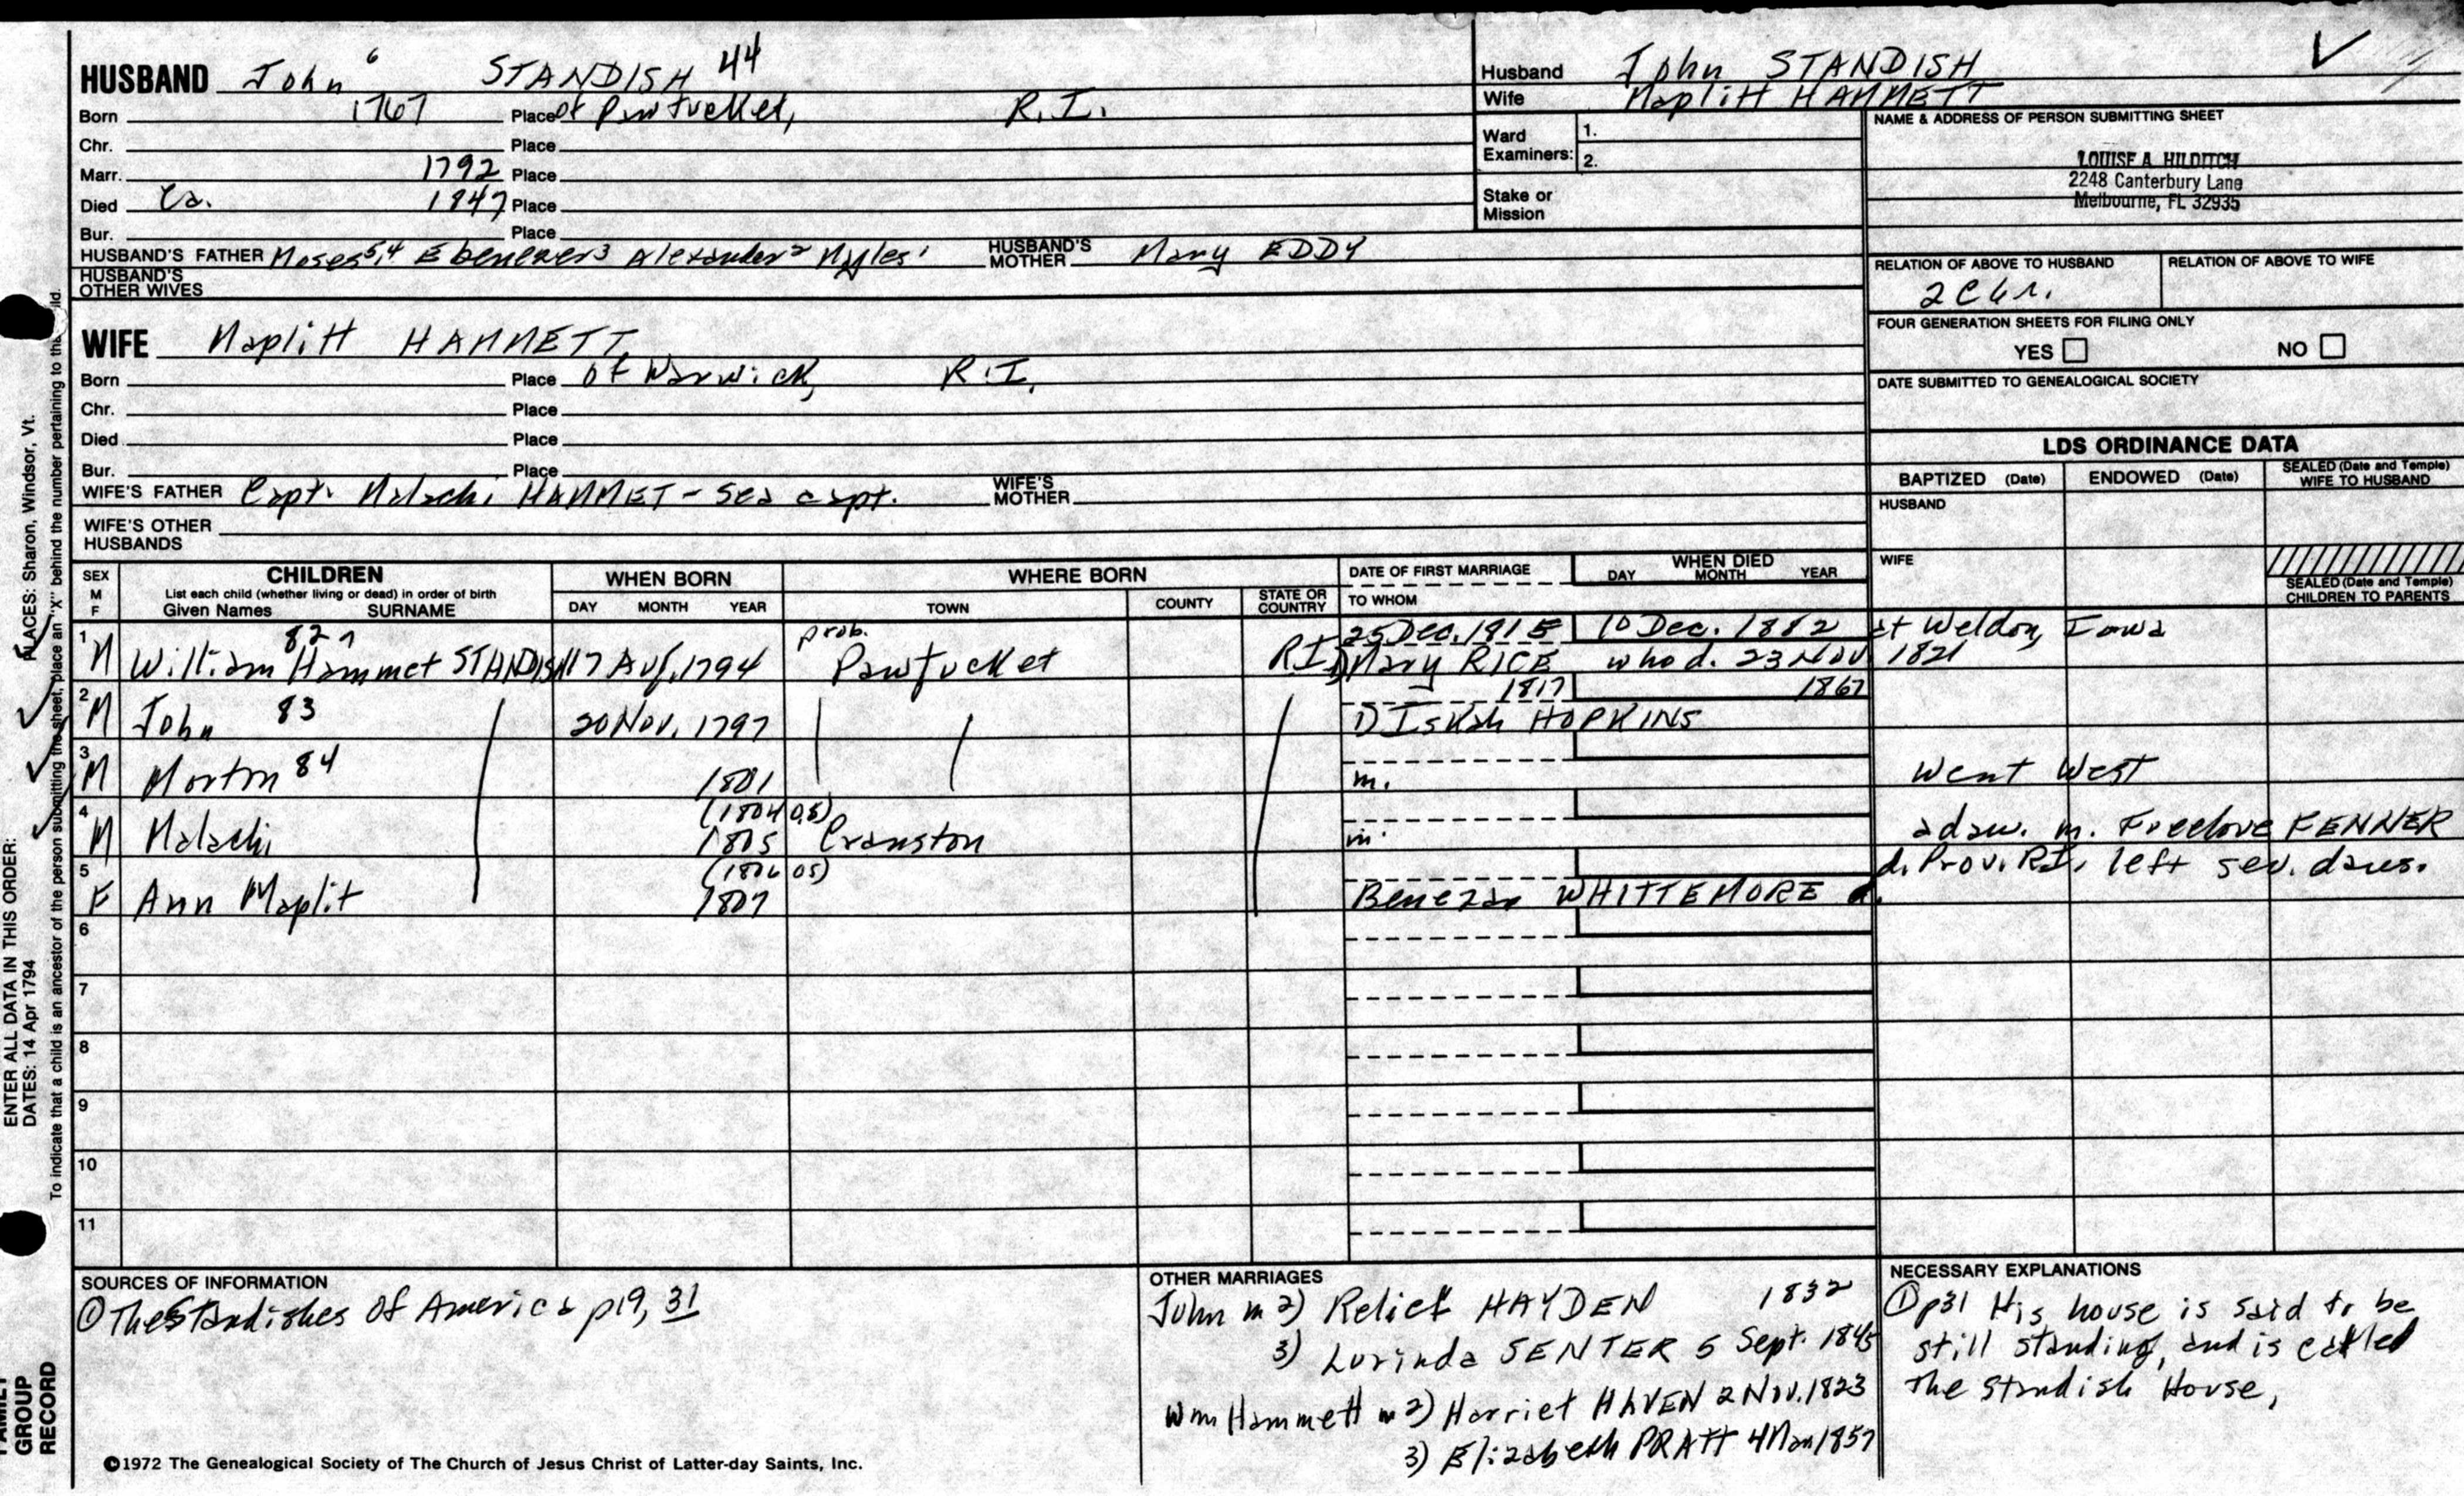 HUSBAND John 6 STANDISH 44
Born 1767 Place of Pawtucket, R.I.
Chr. Place
Marr. 1792 Place
Died Ca. 1847 Place
Bur. Place
HUSBAND'S FATHER Moses 5,4 Ebenezer 3 Alexander 2 Myles 1 HUSBAND'S MOTHER Mary EDDY
HUSBAND'S OTHER WIVES
Husband John STANDISH
Wife Maplitt HAMMETT
Ward Examiners: 1.
2.
Stake or Mission
NAME & ADDRESS OF PERSON SUBMITTING SHEET
LOUISE A HILDITCH
2248 Canterbury Lane
Melbourne, FL 32935
RELATION OF ABOVE TO HUSBAND RELATION OF ABOVE TO WIFE
FOUR GENERATION SHEETS FOR FILING ONLY
YES NO
DATE SUBMITTED TO GENEALOGICAL SOCIETY
WIFE Maplitt HAMMETT
Born Place of Warwick, R.I.
Chr. Place
Died Place
Bur. Place
WIFE'S FATHER Capt. Malachi HAMMET - Sea capt. WIFE'S MOTHER
WIFE'S OTHER HUSBANDS
LDS ORDINANCE DATA
BAPTIZED (Date) ENDOWED (Date) SEALED (Date and Temple) WIFE TO HUSBAND
HUSBAND
WIFE
SEALED (Date and Temple) CHILDREN TO PARENTS
SEX M F CHILDREN List each child (whether living or dead) in order of birth Given Names SURNAME
WHEN BORN DAY MONTH YEAR
WHERE BORN TOWN COUNTY STATE OR COUNTRY
DATE OF FIRST MARRIAGE TO WHOM
WHEN DIED DAY MONTH YEAR
1 82 prob. 25 Dec. 1815 10 Dec. 1882 at Weldon, Iowa
M William Hammet STANDISH 17 Aug. 1794 Pawtucket RI 1) Mary RICE who d. 23 Nov 1821
2 83 1817 1867
M John 20 Nov. 1797 1) Iskah HOPKINS
3 84
M Morton 1801 m. Went West
4 (1804 05)
M Malachi 1805 Cranston m. a dau. m. Freelove FENNER
5 (1806 05) d. Prov. RI, left sev. daus.
F Ann Maplit 1807 Benezar WHITTEMORE d.
6
7
8
9
10
11
SOURCES OF INFORMATION
① The Standishes of America p19, 31
OTHER MARRIAGES
John m 2) Relief HAYDEN 1832
3) Lurinda SENTER 5 Sept. 1845
Wm Hammett m 2) Harriet HAVEN 2 Nov. 1823
3) Elizabeth PRATT 4 Mar 1857
NECESSARY EXPLANATIONS
① p31 His house is said to be
still standing, and is called
The Standish House,
©1972 The Genealogical Society of The Church of Jesus Christ of Latter-day Saints, Inc.
ENTER ALL DATA IN THIS ORDER:
DATES: 14 Apr 1794 PLACES: Sharon, Windsor, Vt.
To indicate that a child is an ancestor of the person submitting the sheet, place an "X" behind the number pertaining to the child.
FAMILY
GROUP
RECORD